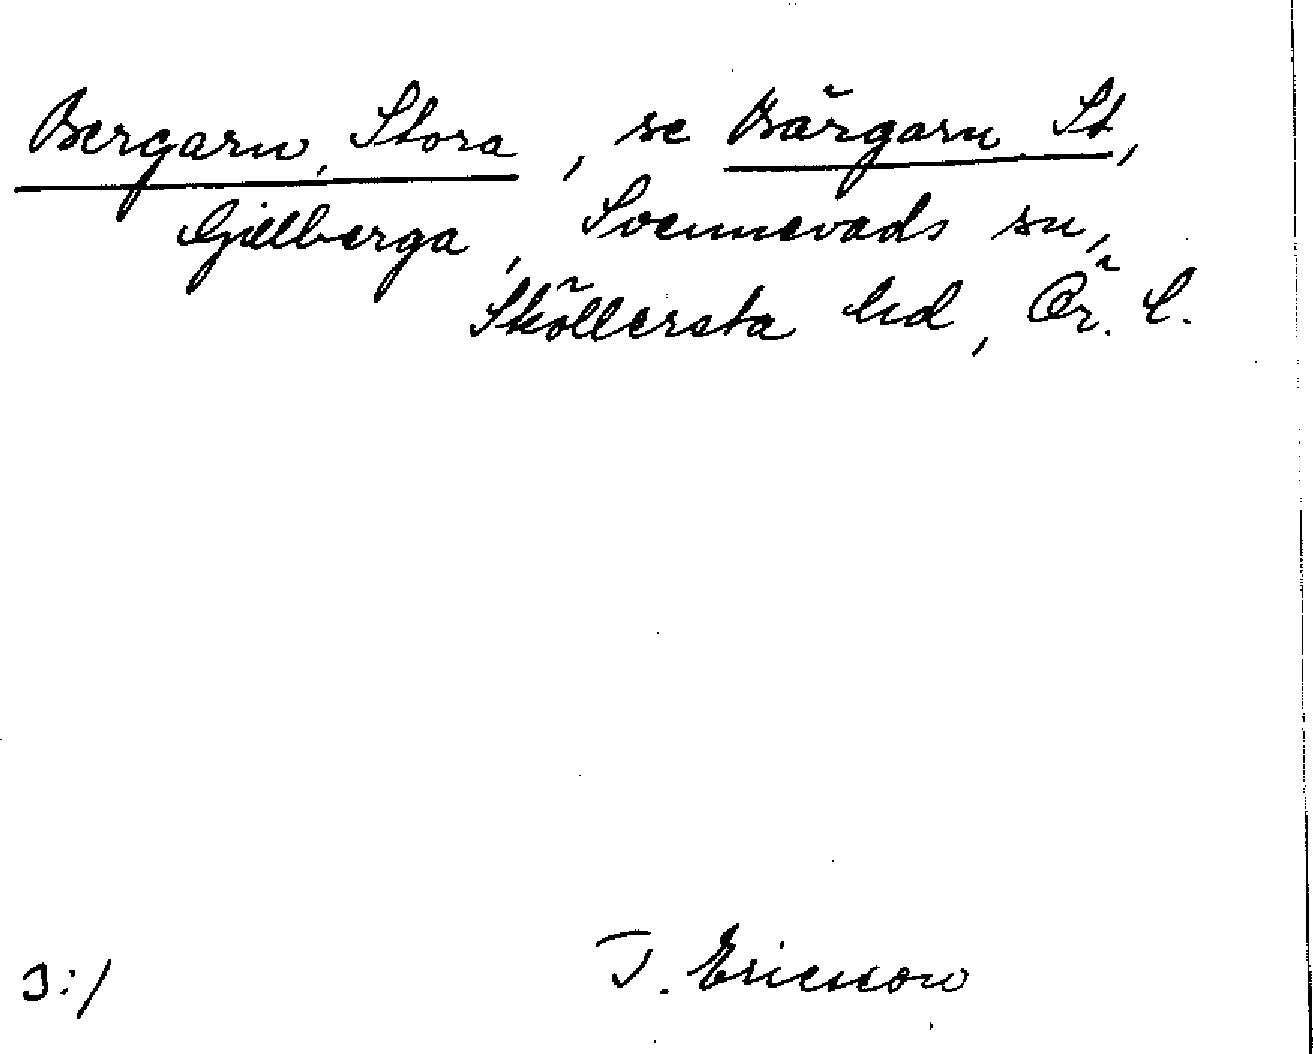 Bergarn, Stora, se Bärgarn St,
Gillberga, Svennevads sn,
Sköllersta hd, Ör. l.
T. Ericsson